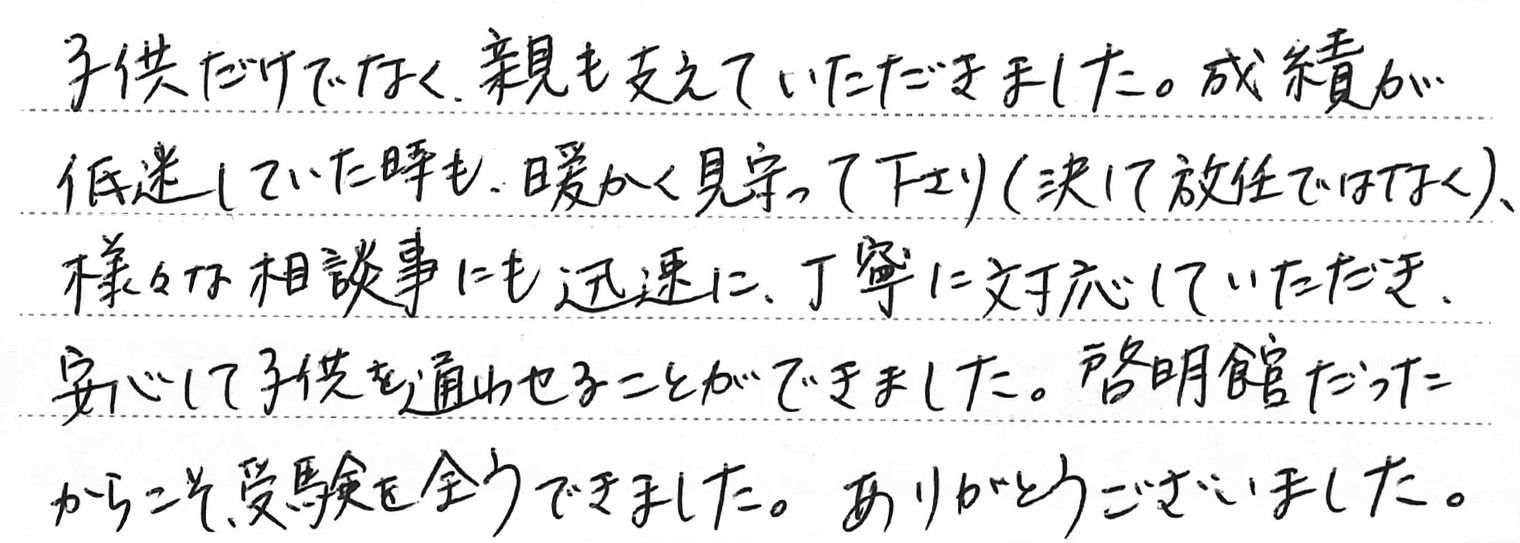 子供だけでなく、親も支えていただきました。成績が
低迷していた時も、暖かく見守って下さり(決して放任ではなく)、
様々な相談事にも迅速に、丁寧に対応していただき、
安心して子供を通わせることができました。啓明館だった
からこそ、受験を全うできました。ありがとうございました。